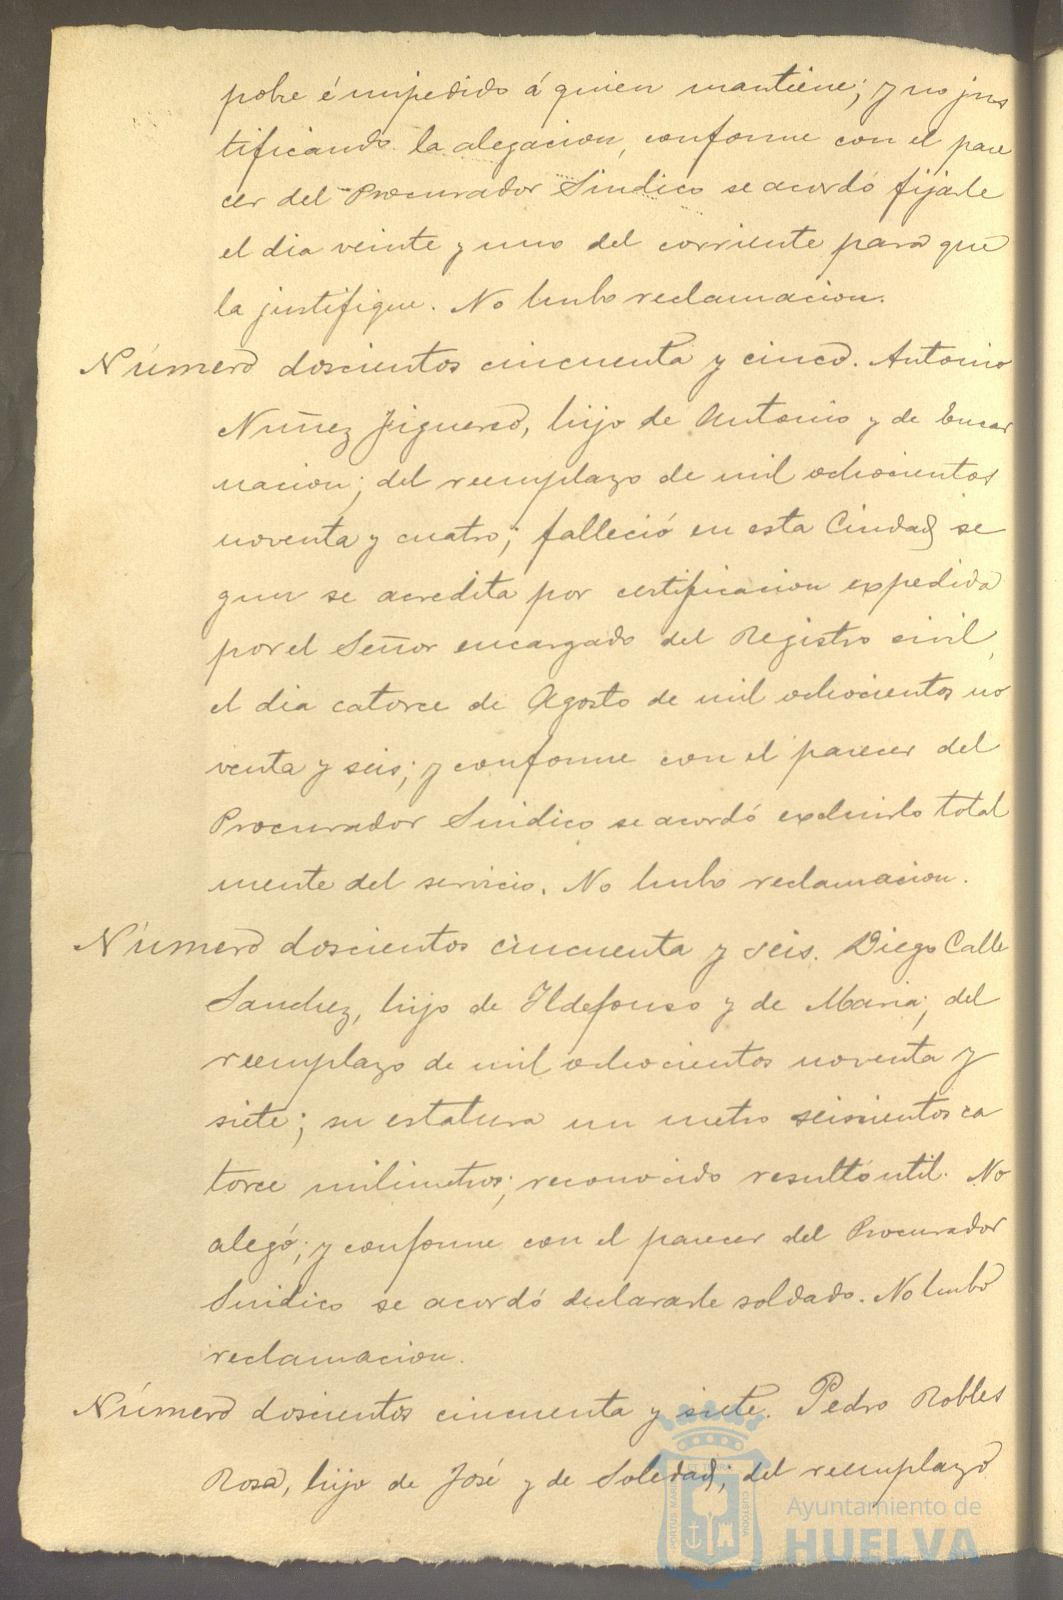 pobre é impedido á quien mantiene; y no jus
tificando la alegacion, conforme con el pare
cer del Procurador Sindico se acordó fijarle
el dia veinte y uno del corriente para que
la justifique. No hubo reclamacion.
Número doscientos cincuenta y cinco. Antonio
Nuñez Figuereo, hijo de Antonio y de Encar
nacion; del reemplazo de mil ochocientos
noventa y cuatro; falleció en esta Ciudad se
gun se acredita por certificacion expedida
por el Señor encargado del Registro civil,
el dia catorce de Agosto de mil ochocientos no
venta y seis; y conforme con el parecer del
Procurador Sindico se acordó excluirlo total
mente del servicio. No hubo reclamacion.
Número doscientos cincuenta y seis. Diego Calle
Sanchez, hijo de Ildefonso y de Maria; del
reemplazo de mil ochocientos noventa y
siete; su estatura un metro seiscientos ca
torce milimetros; reconocido resultó útil. No
alegó; y conforme con el parecer del Procurador
Sindico se acordó declararle soldado. No hubo
reclamacion.
Número doscientos cincuenta y siete. Pedro Robles
Rosa, hijo de José y de Soledad; del reemplazo
Ayuntamiento de
HUELVA
PORTUS MARIS
CUSTODIA